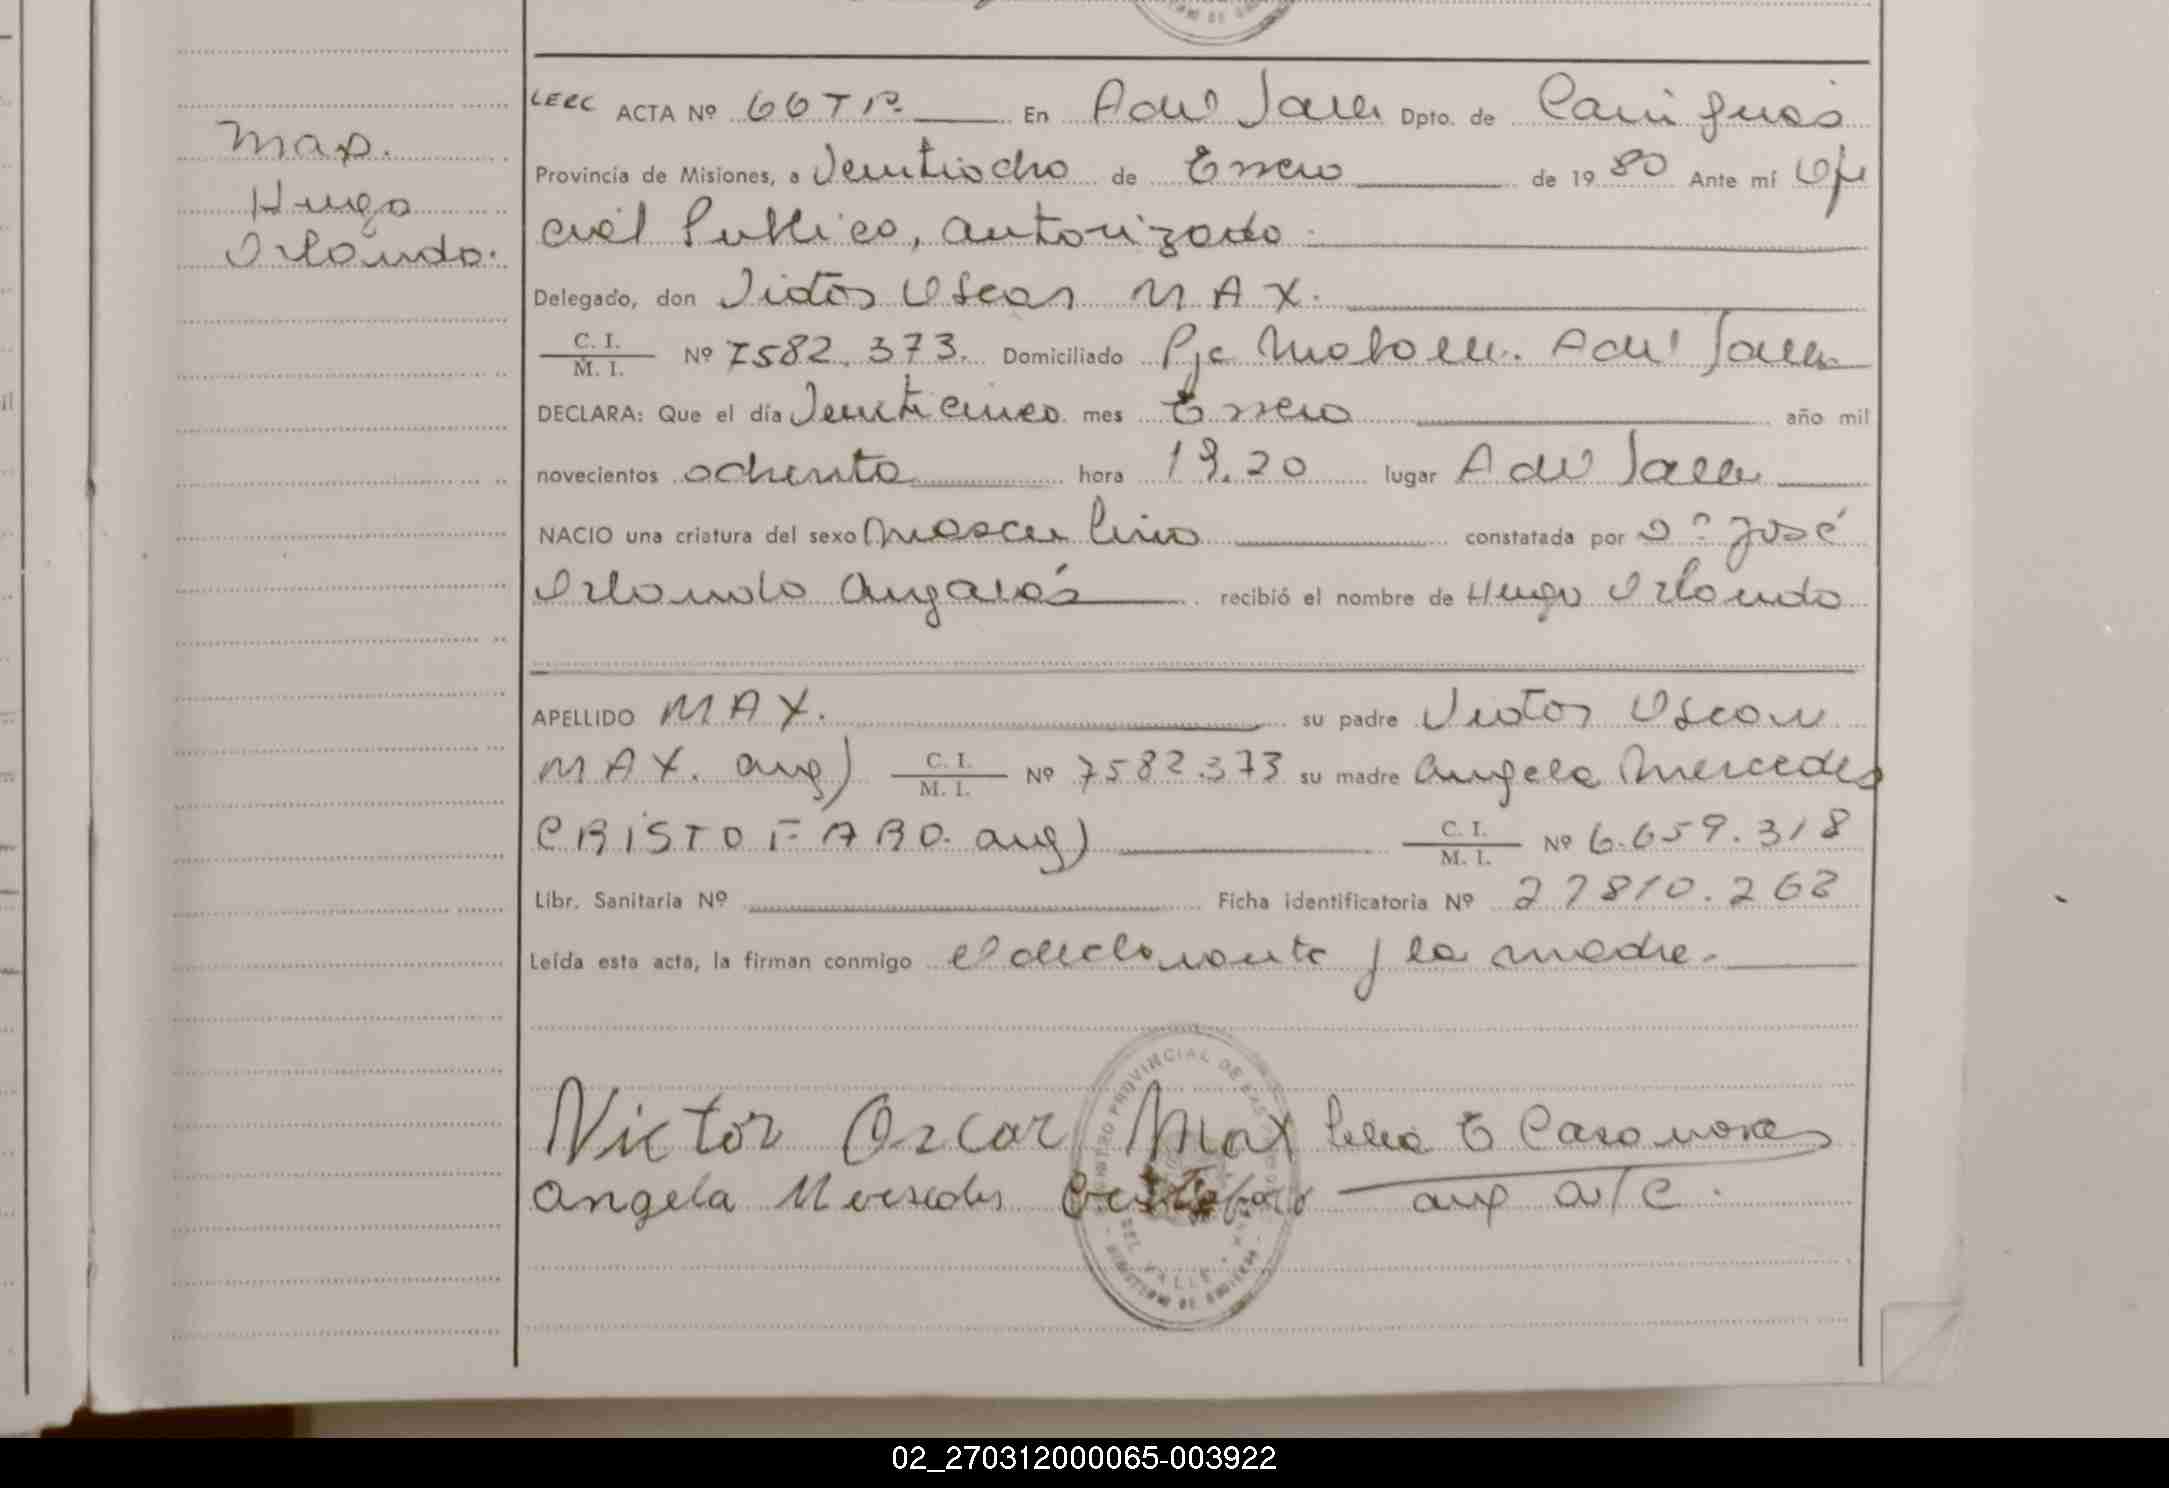 Max.
Hugo
Orlando.
LERC ACTA Nº 66 T R. En A del Valle Dpto. de Cainguás
Provincia de Misiones, a Veintiocho de Enero de 1980 Ante mí Ofi
cial Publico, autorizado.
Delegado, don Victor Oscar MAX.
C. I. / M. I. Nº 7582.373. Domiciliado Pje A del Valle
DECLARA: Que el día Veinticinco mes Enero año mil
novecientos ochenta hora 19.20 lugar A del Valle
NACIO una criatura del sexo Masculino constatada por Dº José
Orlando recibió el nombre de Hugo Orlando
APELLIDO MAX. su padre Victor Oscar
MAX. arg) C. I. / M. I. Nº 7582.373 su madre Angela Mercedes
CRISTOFARO. arg) C. I. / M. I. Nº 6.659.318
Libr. Sanitaria Nº Ficha identificatoria Nº 27810.262
Leída esta acta, la firman conmigo el declarante y la madre.
Victor Oscar Max E Casanova
Angela Mersedes Cristofaro a/c.
REGISTRO PROVINCIAL DE LAS
DEL VALLE
MINISTERIO DE GOBIERNO
02_270312000065-003922